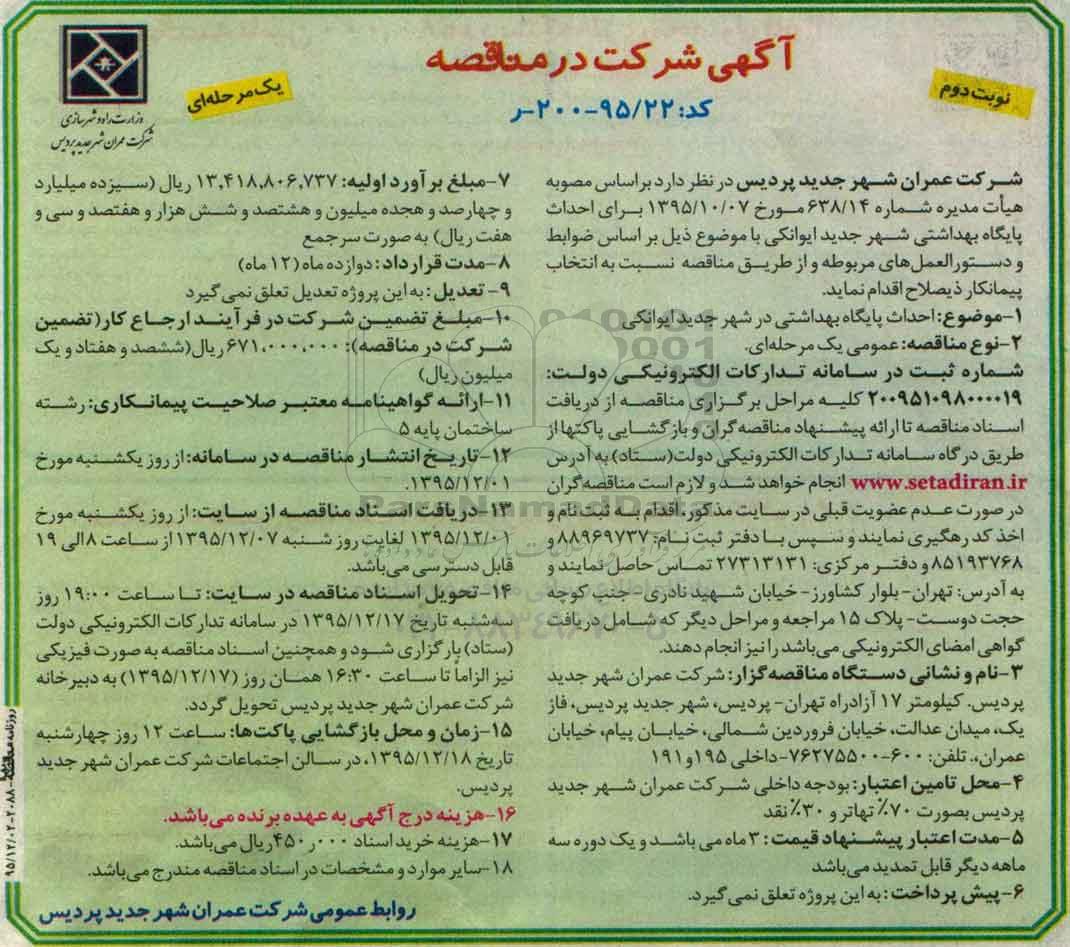 آگهی شرکت در مناقصه
کد: ۹۵/۲۲-۲۰۰-ر
نوبت دوم
یک مرحله‌ای
وزارت راه و شهرسازی
شرکت عمران شهر جدید پردیس
شرکت عمران شهر جدید پردیس در نظر دارد براساس مصوبه
هیأت مدیره شماره ۶۳۸/۱۴ مورخ ۱۳۹۵/۱۰/۰۷ برای احداث
پایگاه بهداشتی شهر جدید ایوانکی با موضوع ذیل بر اساس ضوابط
و دستورالعمل‌های مربوطه و از طریق مناقصه نسبت به انتخاب
پیمانکار ذیصلاح اقدام نماید.
۱-موضوع: احداث پایگاه بهداشتی در شهر جدید ایوانکی
۲-نوع مناقصه: عمومی یک مرحله‌ای.
شماره ثبت در سامانه تدارکات الکترونیکی دولت:
۲۰۰۹۵۱۰۹۸۰۰۰۰۱۹ کلیه مراحل برگزاری مناقصه از دریافت
اسناد مناقصه تا ارائه پیشنهاد مناقصه‌گران و بازگشایی پاکتها از
طریق درگاه سامانه تدارکات الکترونیکی دولت(ستاد) به آدرس
www.setadiran.ir انجام خواهد شد و لازم است مناقصه‌گران
در صورت عدم عضویت قبلی در سایت مذکور، اقدام به ثبت‌نام و
اخذ کد رهگیری نمایند و سپس با دفتر ثبت نام: ۸۸۹۶۹۷۳۷ و
۸۵۱۹۳۷۶۸ و دفتر مرکزی: ۲۷۳۱۳۱۳۱ تماس حاصل نمایند و
به آدرس: تهران- بلوار کشاورز- خیابان شهید نادری- جنب کوچه
حجت دوست- پلاک ۱۵ مراجعه و مراحل دیگر که شامل دریافت
گواهی امضای الکترونیکی می‌باشد را نیز انجام دهند.
۳-نام و نشانی دستگاه مناقصه‌گزار: شرکت عمران شهر جدید
پردیس. کیلومتر ۱۷ آزادراه تهران- پردیس، شهر جدید پردیس، فاز
یک، میدان عدالت، خیابان فروردین شمالی، خیابان پیام، خیابان
عمران،. تلفن: ۶۰۰-۷۶۲۷۵۵۰۰-داخلی ۱۹۵ و ۱۹۱
۴-محل تامین اعتبار: بودجه داخلی شرکت عمران شهر جدید
پردیس بصورت ۷۰٪ تهاتر و ۳۰٪ نقد
۵-مدت اعتبار پیشنهاد قیمت: ۳ ماه می باشد و یک دوره سه
ماهه دیگر قابل تمدید می‌باشد
۶-پیش پرداخت: به این پروژه تعلق نمی گیرد.
۷-مبلغ برآورد اولیه: ۱۳,۴۱۸,۸۰۶,۷۳۷ ریال (سیزده میلیارد
و چهارصد و هجده میلیون و هشتصد و شش هزار و هفتصد و سی و
هفت ریال) به صورت سرجمع
۸-مدت قرارداد: دوازده ماه (۱۲ ماه)
۹- تعدیل: به این پروژه تعدیل تعلق نمی گیرد
۱۰-مبلغ تضمین شرکت در فرآیند ارجاع کار(تضمین
شرکت در مناقصه): ۶۷۱,۰۰۰,۰۰۰ ریال(ششصد و هفتاد و یک
میلیون ریال)
۱۱-ارائه گواهینامه معتبر صلاحیت پیمانکاری: رشته
ساختمان پایه ۵
۱۲-تاریخ انتشار مناقصه در سامانه: از روز یکشنبه مورخ
۱۳۹۵/۱۲/۰۱.
۱۳-دریافت اسناد مناقصه از سایت: از روز یکشنبه مورخ
۱۳۹۵/۱۲/۰۱ لغایت روز شنبه ۱۳۹۵/۱۲/۰۷ از ساعت ۸ الی ۱۹
قابل دسترسی می‌باشد.
۱۴-تحویل اسناد مناقصه در سایت: تا ساعت ۱۹:۰۰ روز
سه‌شنبه تاریخ ۱۳۹۵/۱۲/۱۷ در سامانه تدارکات الکترونیکی دولت
(ستاد) بارگزاری شود و همچنین اسناد مناقصه به صورت فیزیکی
نیز الزاماً تا ساعت ۱۶:۳۰ همان روز (۱۳۹۵/۱۲/۱۷) به دبیرخانه
شرکت عمران شهر جدید پردیس تحویل گردد.
۱۵-زمان و محل بازگشایی پاکت‌ها: ساعت ۱۲ روز چهارشنبه
تاریخ ۱۳۹۵/۱۲/۱۸، در سالن اجتماعات شرکت عمران شهر جدید
پردیس.
۱۶-هزینه درج آگهی به عهده برنده می‌باشد.
۱۷-هزینه خرید اسناد ۴۵۰ر۰۰۰ ریال می‌باشد.
۱۸-سایر موارد و مشخصات در اسناد مناقصه مندرج می‌باشد.
روابط عمومی شرکت عمران شهر جدید پردیس